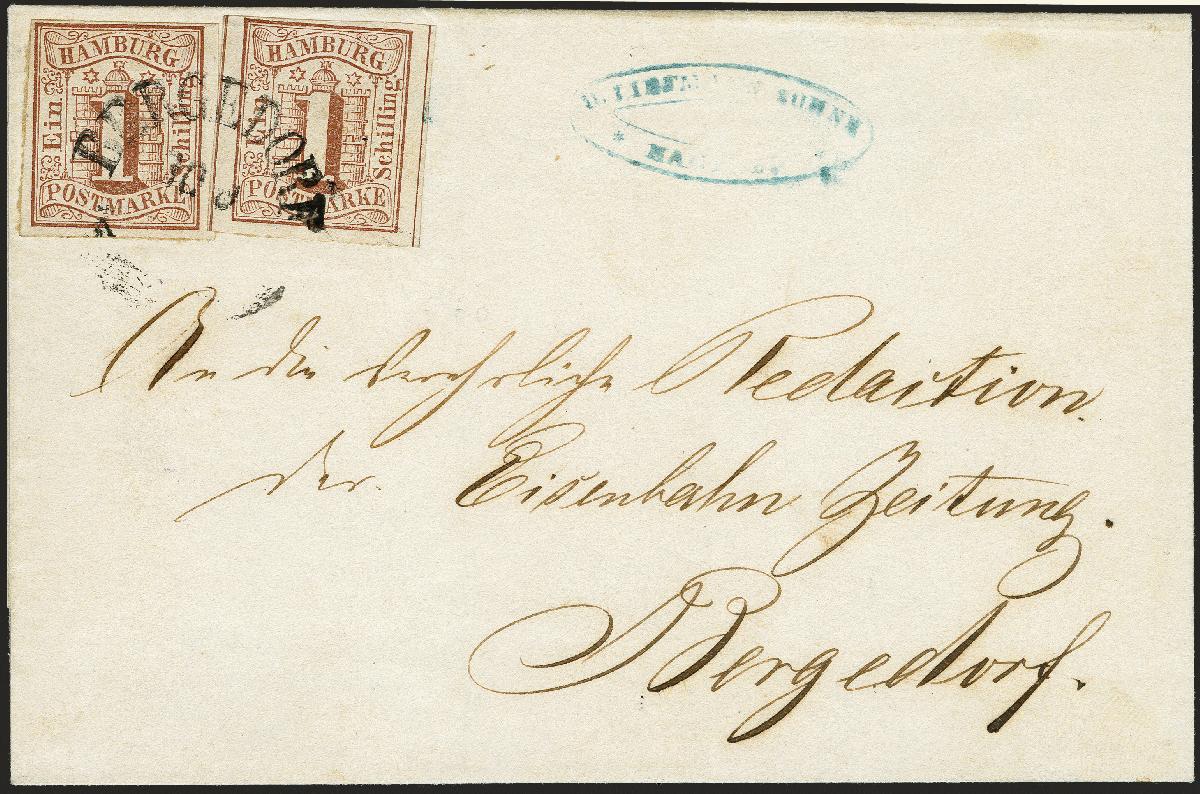 HAMBURG
Ein
1
Schilling
POSTMARKE
HAMBURG
Ein
1
Schilling
POSTMARKE
BERGEDORF
SÖHNE
An die verehrliche Redaction
der Eisenbahn Zeitung.
Bergedorf.